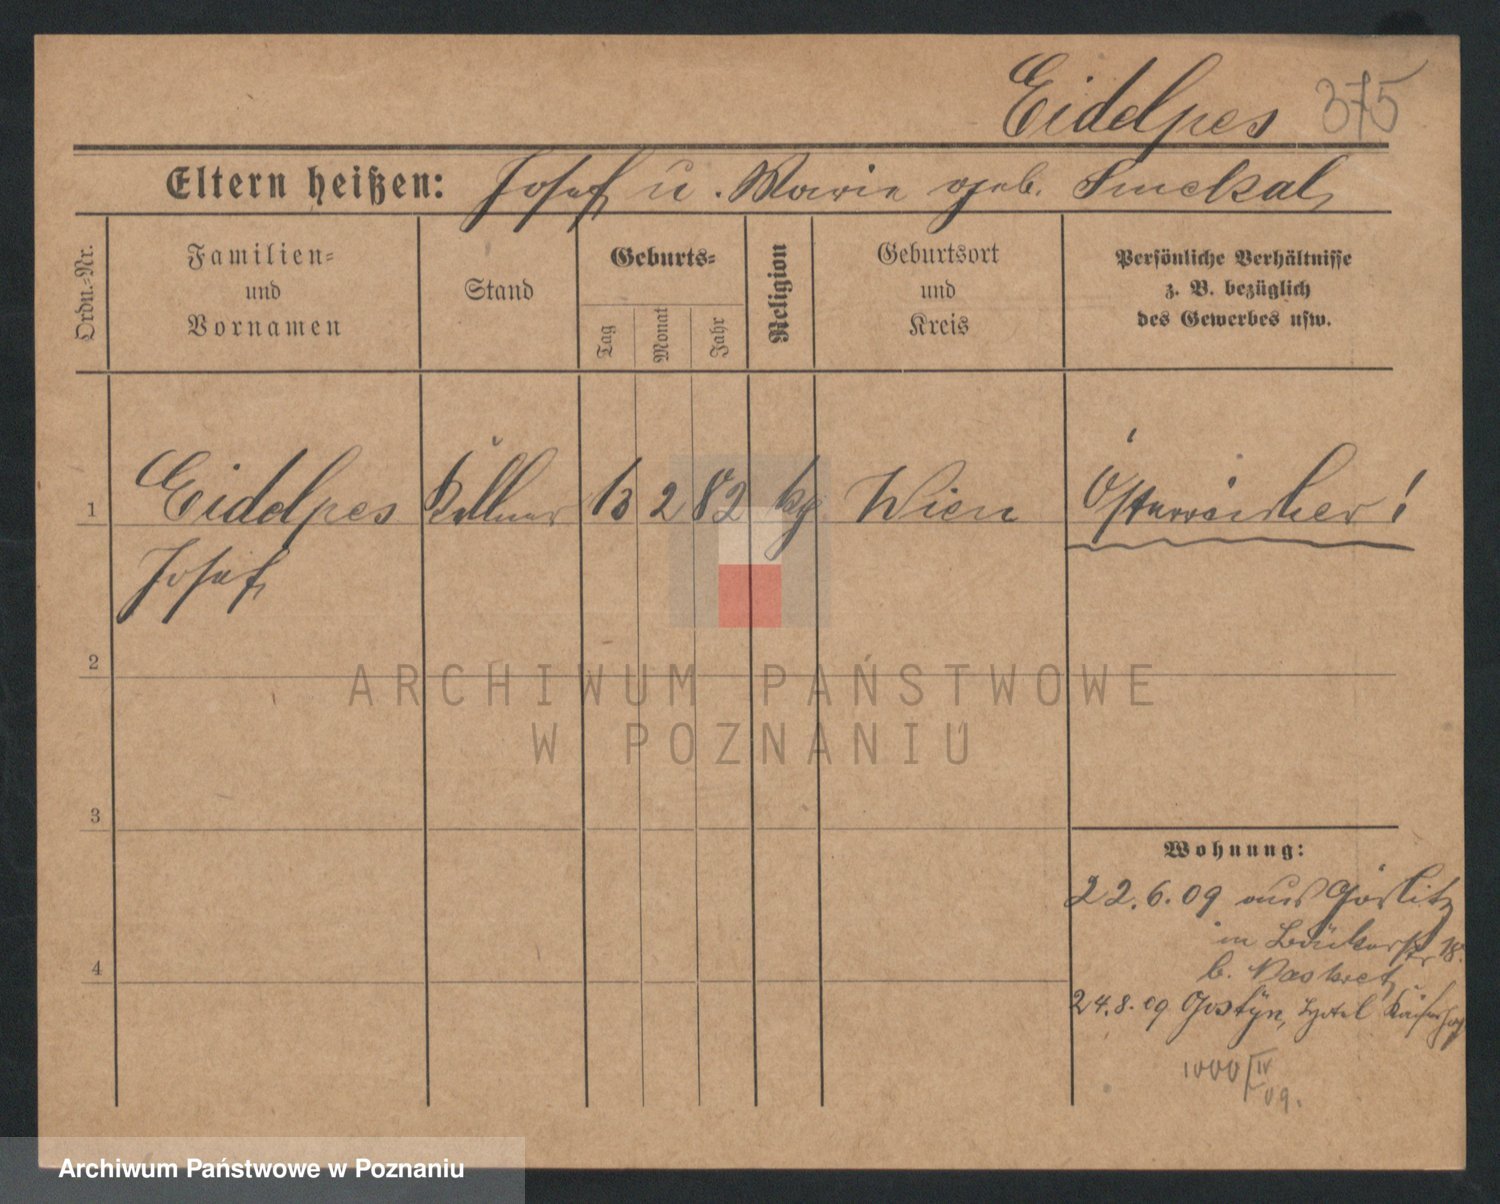 Eidelpes 375
Eltern heißen: Josef u. Marie geb. Smekal
Ordn.-Nr.
Familien-
und
Vornamen
Stand
Geburts-
Tag
Monat
Jahr
Religion
Geburtsort
und
Kreis
Persönliche Verhältnisse
z. B. bezüglich
des Gewerbes usw.
1 Eidelpes Kellner 13 2 82 kg Wien Österreicher!
Josef
2
3
4
Wohnung:
22.6.09 aus Görlitz
in 18.
b.
24.8.09 Gostyn, Hotel Kaiserhof
1000/IV
09.
ARCHIWUM PAŃSTWOWE
W POZNANIU
Archiwum Państwowe w Poznaniu